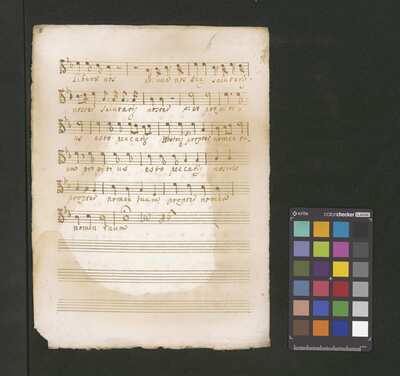 Libera nos et nos Deus salutaris
noster salutaris noster et propiti
us esto peccatis nostris propter nomen tu
um propitius esto peccatis nostris
propter nomen tuum propter nomen
nomen tuum
x-rite colorchecker CLASSIC